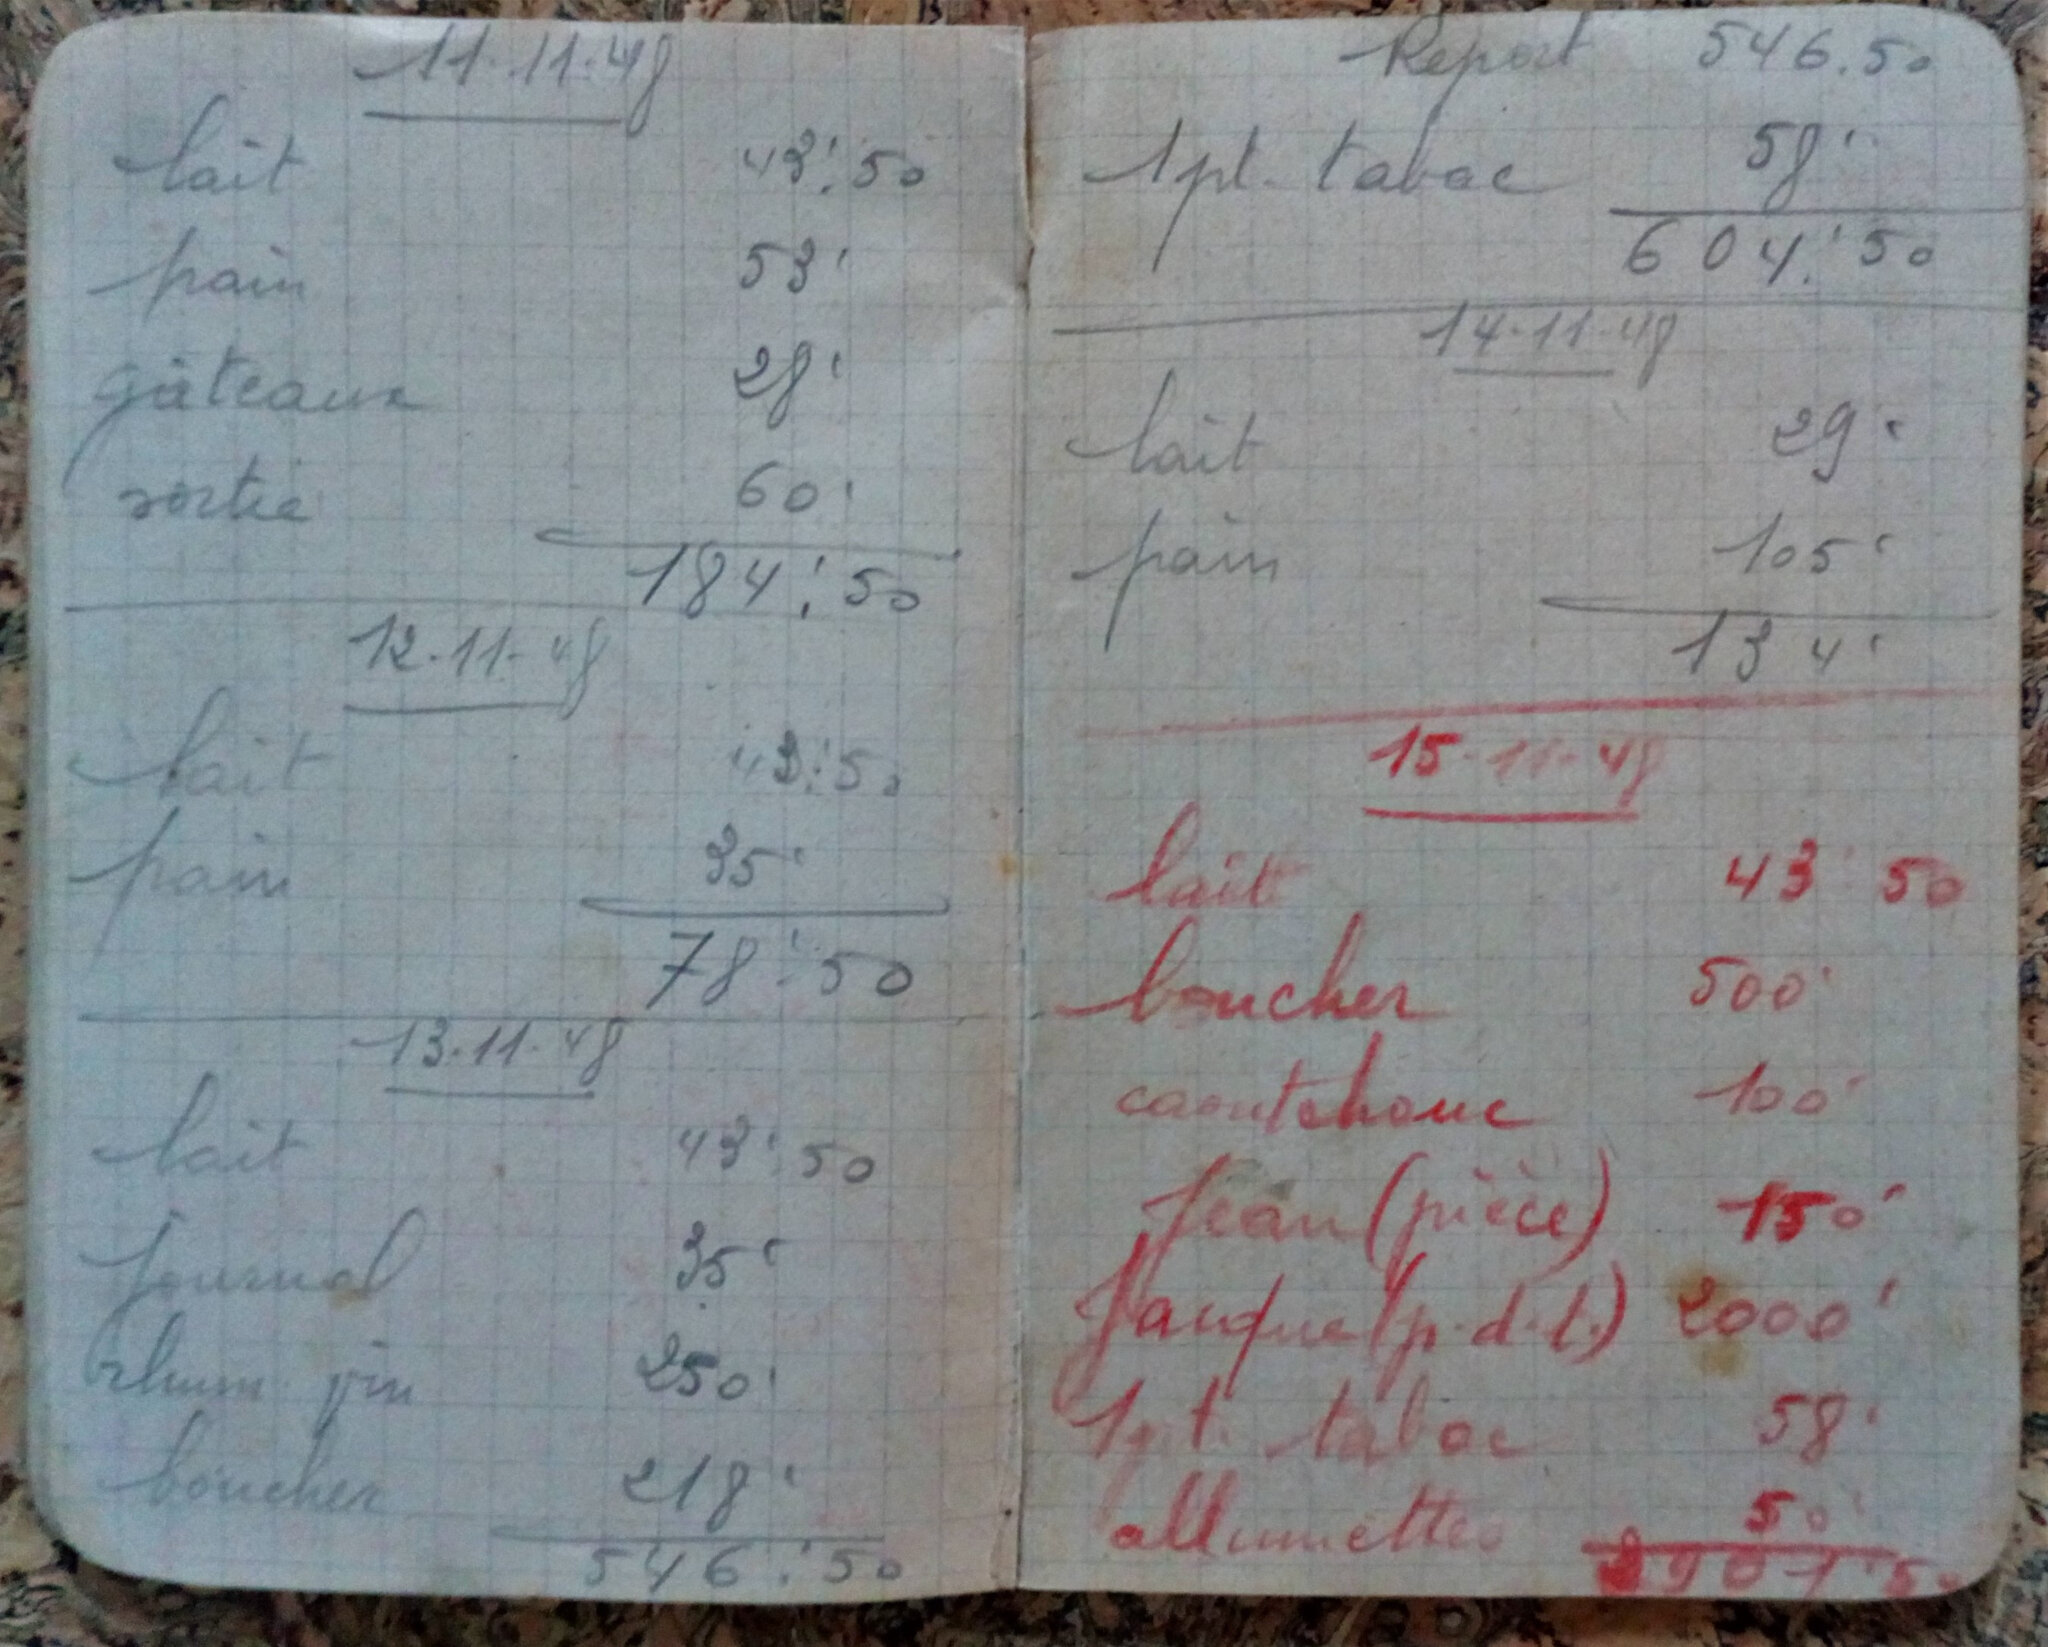 11.11.48
lait 43!50
pain 53'
gâteaux 28'
sortie 60'
184!50
12.11.48
lait 43!50
pain 35'
78!50
13.11.48
lait 43!50
journal 35'
rhum vin 250'
boucher 218'
546!50
Report 546.50
1 pt. tabac 58'
604!50
14.11.48
lait 29'
pain 105'
134'
15.11.48
lait 43'50
boucher 500'
caoutchouc 100'
Jean (pièce) 150'
Jauque (p.d.t.) 2000'
1 pt. tabac 58'
allumettes 50'
2901'50